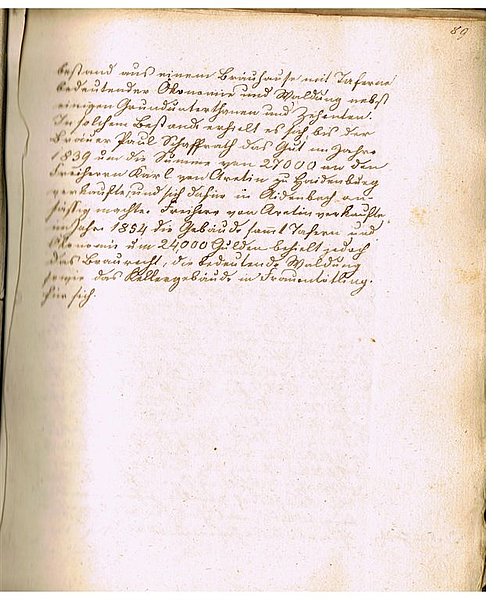 89
bestand aus einem Brauhause mit Taferne
bedeutender Ökonomie und Waldung nebst
einigen Grundunterthanen und Zehenten.
In solchem Bestande erhielt es sich bis der
Brauer Paul Schaffrath das Gut im Jahre
1839 um die Summe von 27000 an den
Freiherrn Karl von Aretin zu Haidenburg
verkaufte, und sich dafür in Aidenbach an-
sässig machte. Freiherr von Aretin verkaufte
im Jahre 1854 die Gebäude samt Tafern und
Ökonomie um 24000 Gulden behielt jedoch
das Braurecht, die bedeutende Waldung
sowie das Kellergebäude in Frauentödling.
für sich.